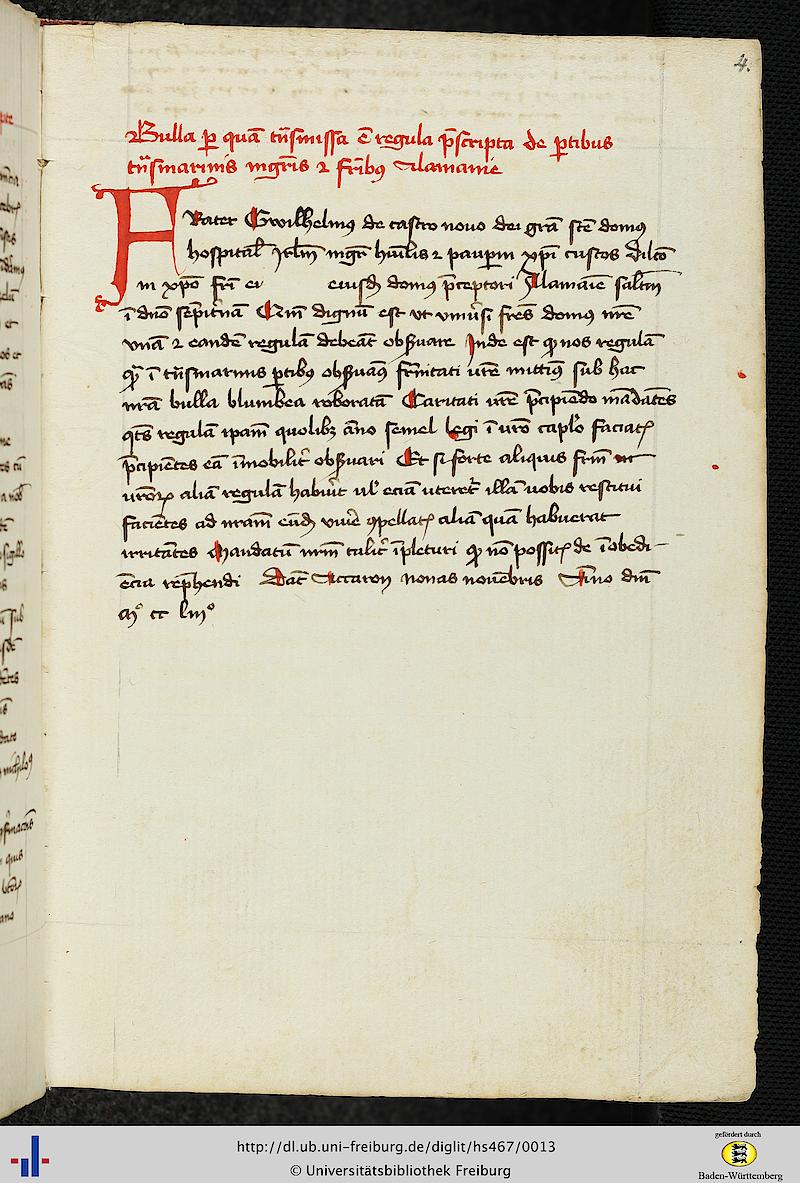 4.
Bulla ꝑ quā tn̄smissa ē regula p̄scripta de ꝑtibus
tn̄smarinis mgr̄is ⁊ frībꝰ Alamanie
FRater Gwilhelmꝰ de castro nouo dei grā stē domꝰ
hospital̄ Jrl̄m mgr̄ hūilis ⁊ pauꝑm xp̄i custos dilc̄o
in xp̄o frī ei eiusdꝫ domꝰ p̄ceptori Alamaīe salt̄m
ī dn̄o sēpitnā Cum dignū est vt vniuˀsi frēs domꝰ nr̄e
vnā ⁊ eandē regulā debeāt obẜuare Inde est ꝙ nos regulā
quā ī tn̄smarinis ꝑtibꝰ obẜuamꝰ frn̄itati vr̄e mittimꝰ sub hac
nr̄a bulla blumbea roborata Caritati vr̄e p̄cipiendo mādātes
qt̄s regulā ip̄am quolibꝫ āno semel legi ī vr̄o capl̓o faciatꝭ
p̄cipiētes eā īmobilitˀ obẜuari Et si forte aliquis frm̄
vr̄oꝝ aliā regulā habuˀit vl̓ eciā vteretˀ illā uobis restitui
faciētes ad nr̄am eūdꝫ viuˀe ꝯpellatꝭ aliā quā habuerat
irritātes Mandatū nr̄m talitˀ īpleturi ꝙ nō possitꝭ de īobedi-
ēcia rep̄hendi Dat̄ Accaron nonas nouēbris Anno dn̄i
Mº cc liiiº
http://dl.ub.uni-freiburg.de/diglit/hs467/0013
© Universitätsbibliothek Freiburg
gefördert durch
Baden-Württemberg